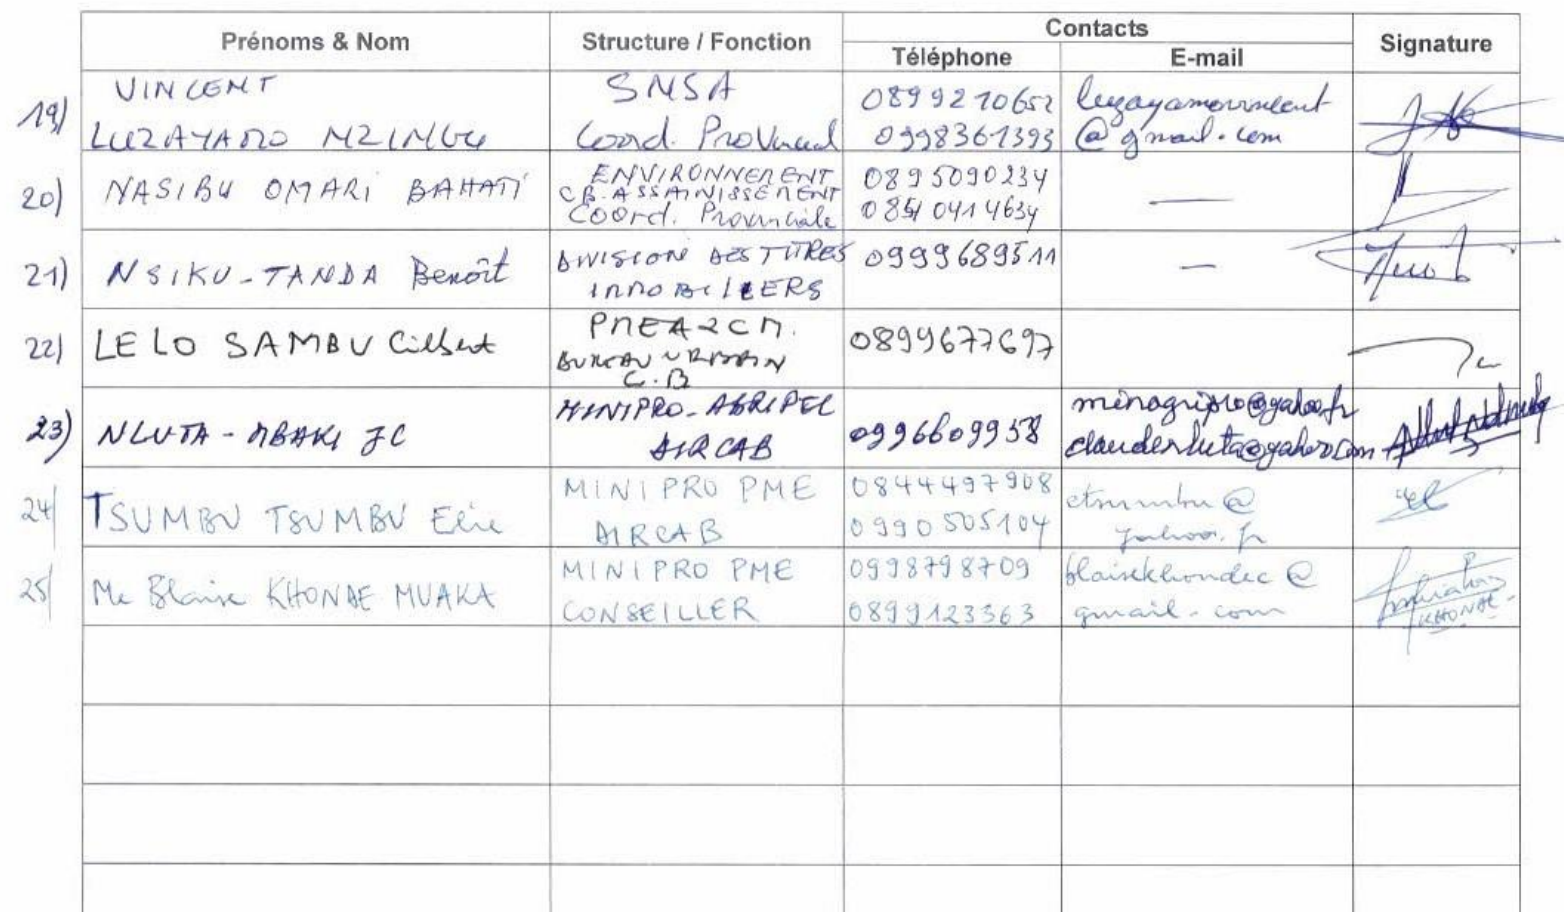 Prénoms & Nom
Structure / Fonction
Contacts
Téléphone
E-mail
Signature
19)
VINCENT
LUZAYAMO MZINGU
SNSA
Coord. Provincial
0899210652
0998361393
@gmail.com
20)
NASIBU OMARI BAHATI
ENVIRONNEMENT
CB. ASSAINISSEMENT
Coord. Provinciale
0895090234
—
21)
NSIKU-TANDA Benoît
DIVISION DES TITRES
IMMOBILIERS
0999689511
—
22)
LELO SAMBU Gilbert
PMEA2CM.
BUREAU URBAIN
C.B
0899677697
23)
NLUTA-MBAKI JC
MINIPRO-AGRIPEL
DIRCAB
0996609958
minagripro@yahoo.fr
24
TSUMBU TSUMBU Elie
MINIPRO PME
DIRCAB
0844497908
0990505104
etsumbu@
yahoo.fr
25
Me Blaise KHONDE MUAKA
MINIPRO PME
CONSEILLER
0998798709
0899123363
blaisekhondec@
gmail.com
KHONDE